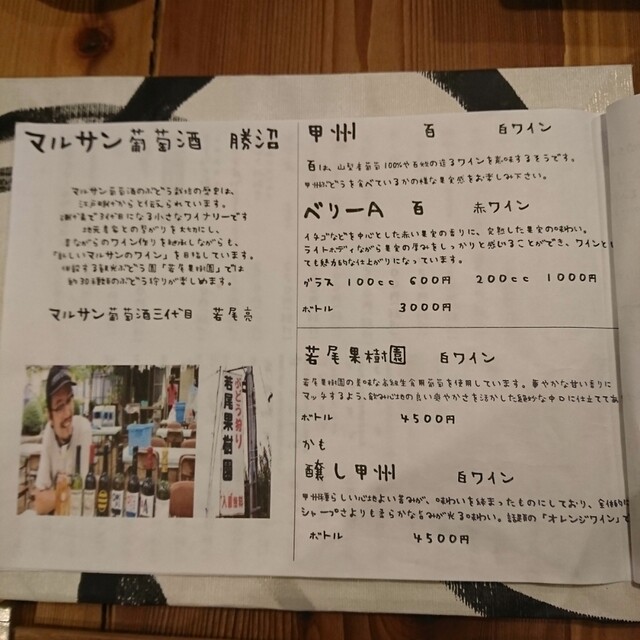 マルサン葡萄酒 勝沼
マルサン葡萄酒のぶどう栽培の歴史は、
江戸時代からと伝えられています。
地元農家との繋がりを大切にし、
昔ながらのワイン作りを
「新しいマルサンのワイン」を目指しています。
併設する観光ぶどう園「若尾果樹園」では
約30種類のぶどう狩りが楽しめます。
マルサン葡萄酒三代目 若尾亮
ぶどう狩り
若尾果樹園
入園無料
甲州 百 白ワイン
百は、山梨産葡萄100%や百姓の造るワインを意味するそうです。
甲州ぶどうを食べているかの様な果実感をお楽しみ下さい。
ベリーA 百 赤ワイン
イチゴなどを中心とした赤い果実の香りに、完熟した果実の味わい。
ライトボディながら果実の厚みをしっかりと感じることができ、ワインとし
ても魅力的な仕上がりになっています。
グラス 100cc 600円 200cc 1000円
ボトル 3000円
若尾果樹園 白ワイン
若尾果樹園の美味な高級生食用葡萄を使用しています。華やかな甘い香りに
マッチするよう、飲み心地の良い爽やかさを活かした絶妙な中口に仕立ててあ
ボトル 4500円
かも
醸し甲州 白ワイン
甲州種らしい心地よい旨みが、味わいを締まったものにしており、全体的に
シャープさよりも柔らかな旨みが光る味わい。話題の「オレンジワイン」で
ボトル 4500円